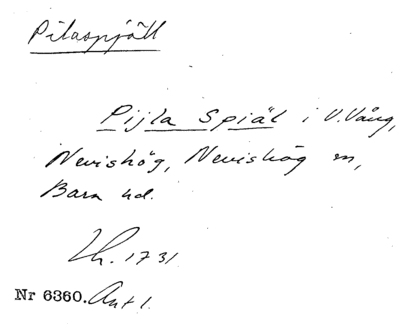 Pilaspjäll
Pijla Spiäl i V. Vång,
Nevishög, Nevishög sn,
Bara hd.
Lh. 1731
Nr 6360. Ant 1.